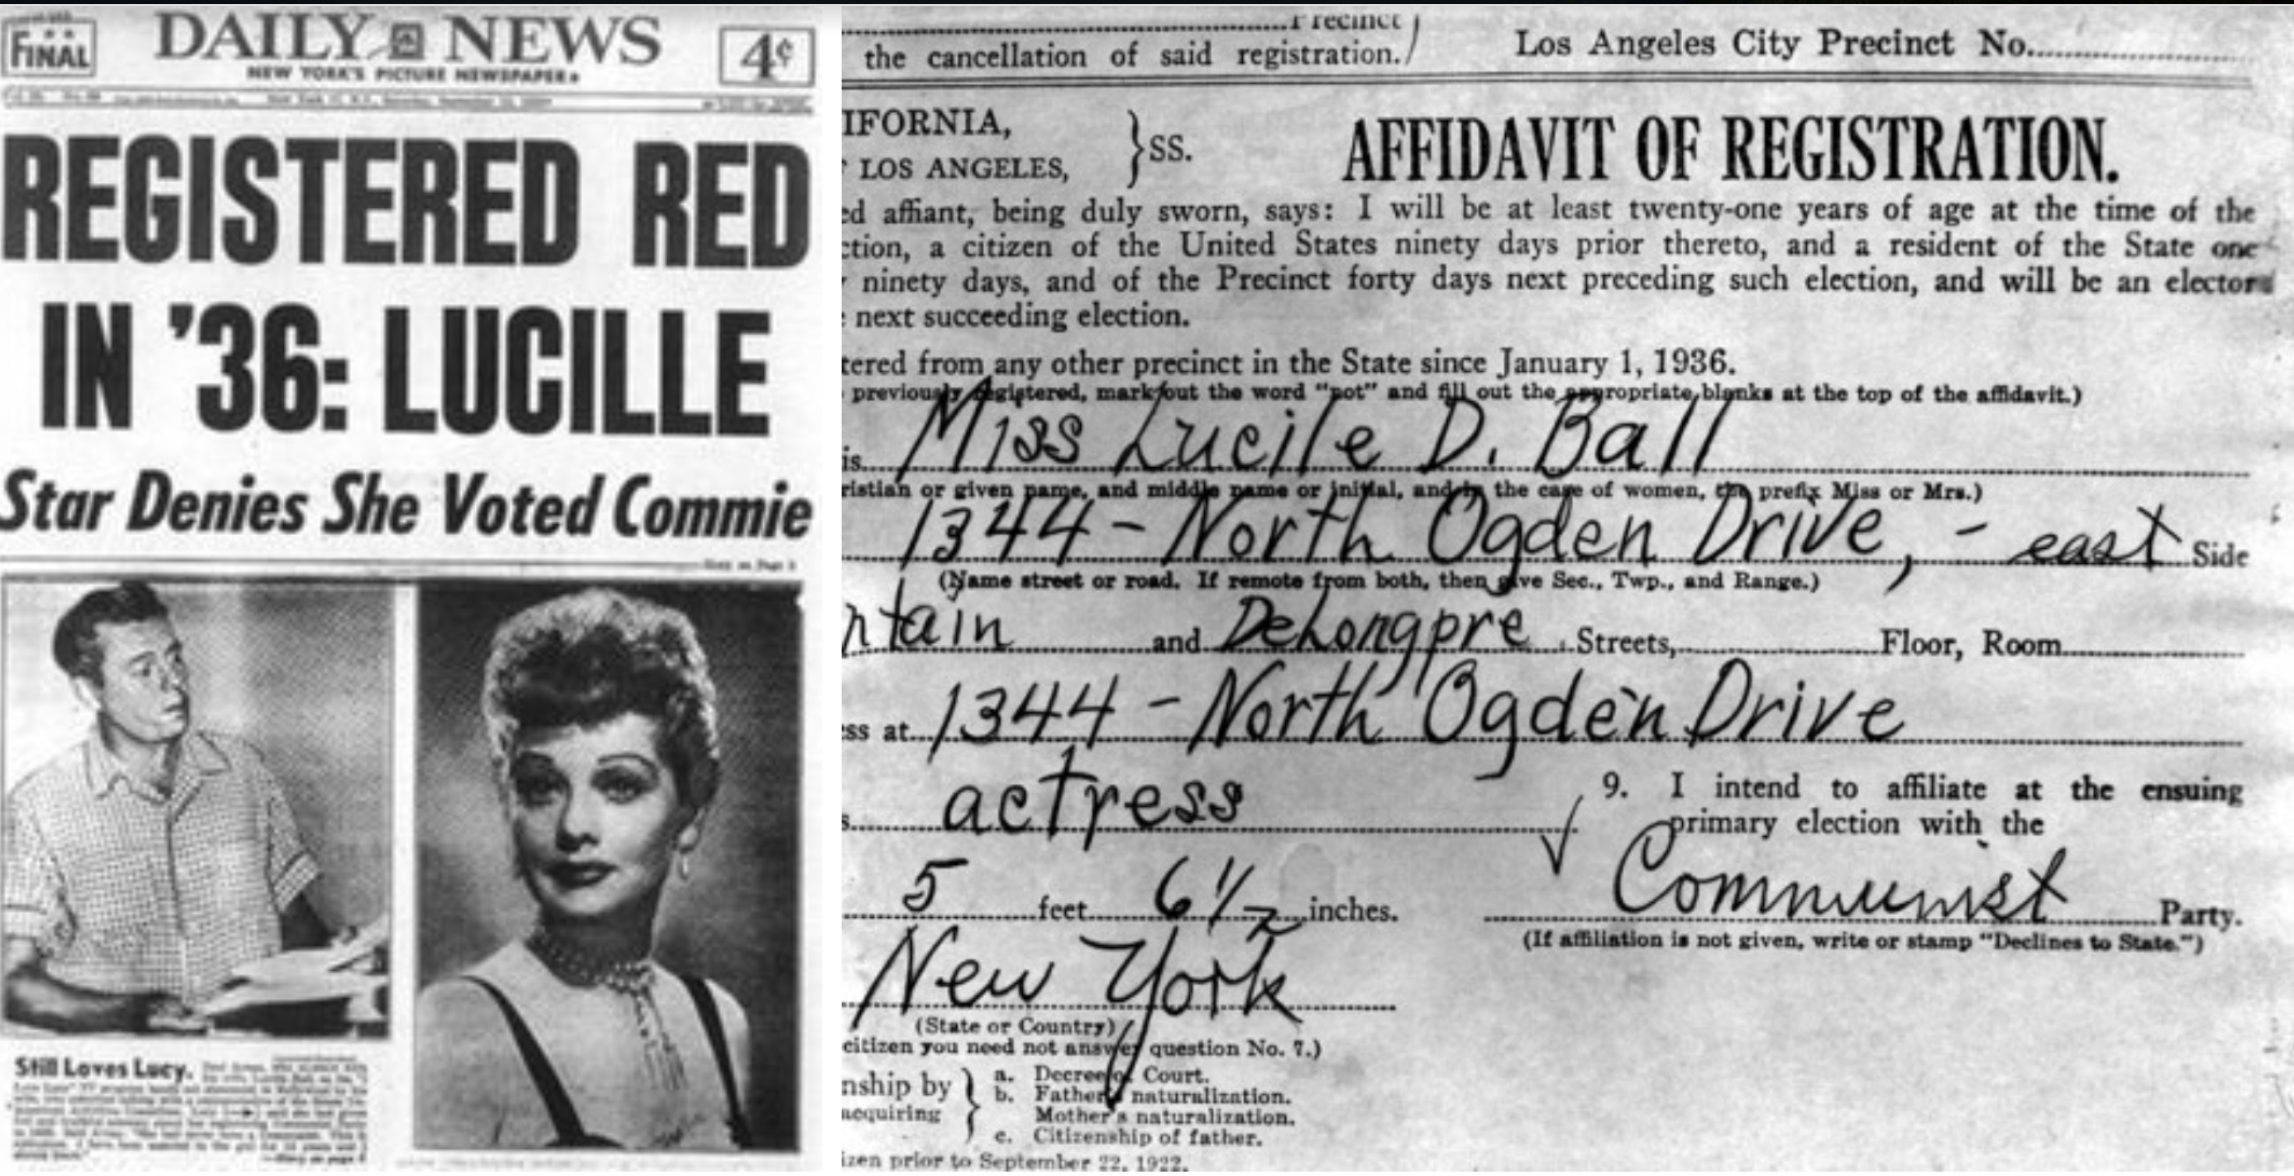 FINAL
DAILY NEWS
4¢
NEW YORK'S PICTURE NEWSPAPER
REGISTERED RED
IN '36: LUCILLE
Star Denies She Voted Commie
Still Loves Lucy.
Precinct
the cancellation of said registration.
Los Angeles City Precinct No.
IFORNIA,
LOS ANGELES,
} SS.
AFFIDAVIT OF REGISTRATION.
ed affiant, being duly sworn, says: I will be at least twenty-one years of age at the time of the
ction, a citizen of the United States ninety days prior thereto, and a resident of the State one
ninety days, and of the Precinct forty days next preceding such election, and will be an elector
next succeeding election.
tered from any other precinct in the State since January 1, 1936.
previously registered, mark out the word "not" and fill out the appropriate blanks at the top of the affidavit.)
is Miss Lucile D. Ball
ristian or given name, and middle name or initial, and in the case of women, the prefix Miss or Mrs.)
1344 - North Ogden Drive, - east Side
(Name street or road. If remote from both, then give Sec., Twp., and Range.)
ntain and DeLongpre Streets, Floor, Room
ss at 1344 - North Ogden Drive
s actress
9. I intend to affiliate at the ensuing
primary election with the
Communist Party.
(If affiliation is not given, write or stamp "Declines to State.")
5 feet 6 1/2 inches.
New York
(State or Country)
citizen you need not answer question No. 7.)
nship by
acquiring
a. Decree of Court.
b. Father's naturalization.
Mother's naturalization.
c. Citizenship of father.
izen prior to September 22, 1922.